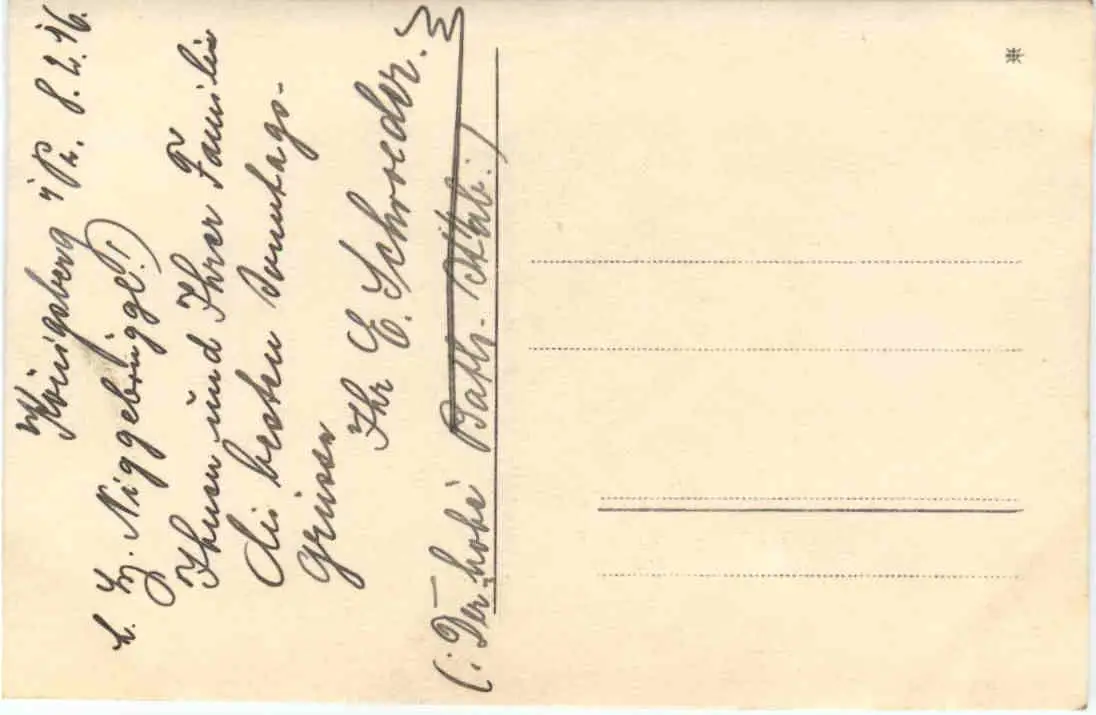 Königsberg i/Pr. 8.2.16.
L. Hr. Niggebrügge!
Ihnen und Ihrer Familie
die besten Sonntags-
grüsse
Ihr E. Schroeder.
(: Der hohe